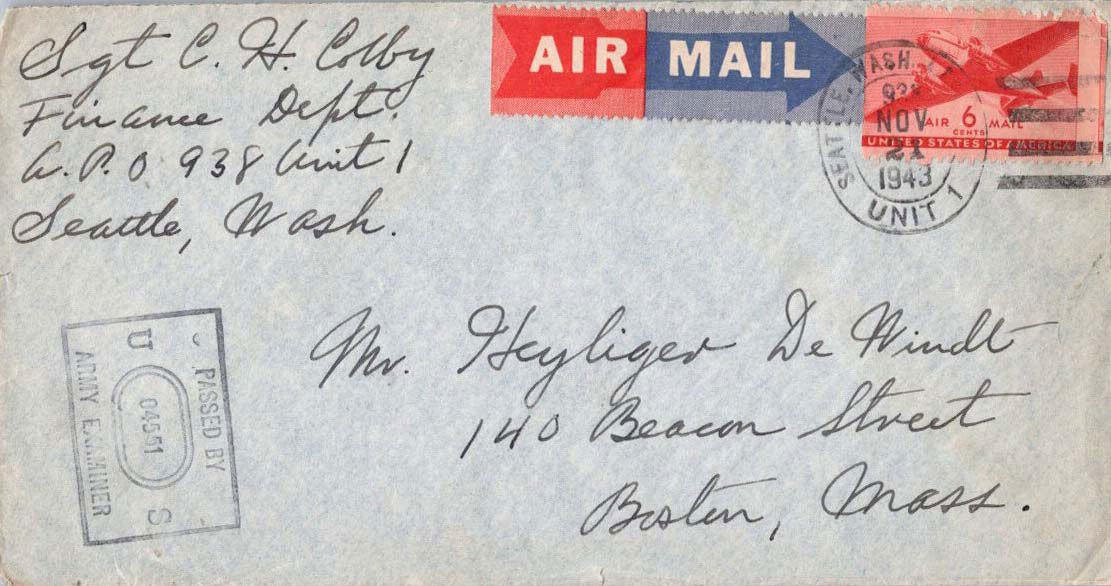 Sgt C. H. Colby
Finance Dept.
A.P.O 938 Unit 1
Seattle, Wash.
AIR MAIL
AIR 6 MAIL
CENTS
UNITED STATES OF AMERICA
SEATTLE, WASH.
NOV
21
1943
UNIT 1
Mr. Heyliger De Windt
140 Beacon Street
Boston, Mass.
PASSED BY
U S
04551
ARMY EXAMINER